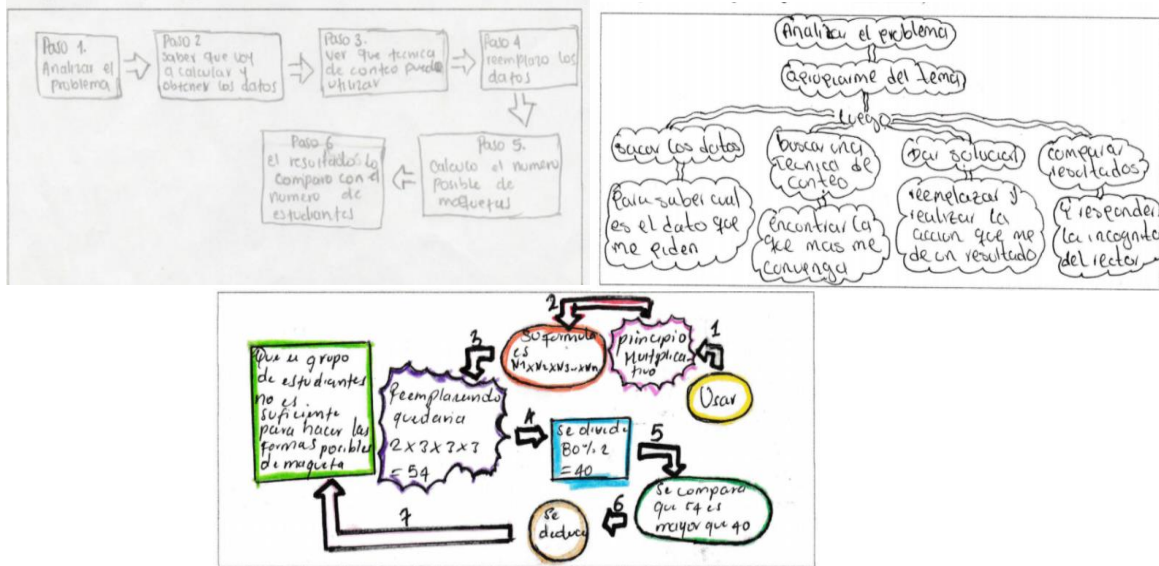 Paso 1.
Analizar el
problema
Paso 2
Saber que voy
a calcular y
obtener los datos
Paso 3.
ver que tecnica
de conteo puedo
utilizar
Paso 4
reemplazo los
datos
Paso 5.
Calculo el numero
posible de
maquetas
Paso 6
el resultados lo
comparo con el
numero de
estudiantes
Analizar el problema
apropiarme del tema
luego
sacar los datos
Para saber cual
es el dato que
me piden
buscar una
tecnica de
conteo
encontrar la
que mas me
convenga
Dar solucion
reemplazar y
realizar la
accion que me
de un resultado
comparar
resultados
y responder
la incognita
del rector
1
Usar
principio
Multiplica-
tivo
2
Su formula
es
N1xN2xN3...xNn
3
Reemplasando
quedaria
2x3x3x3
=54
4
Se divide
80%2
=40
5
Se compara
que 54 es
mayor que 40
6
Se
deduce
7
Que el grupo
de estudiantes
no es
suficiente
para hacer las
formas posibles
de maqueta